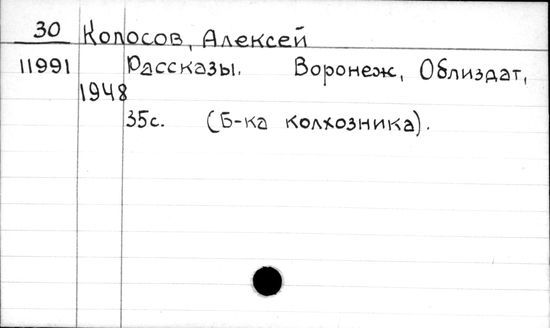 30 Колосов, Алексей
11991 Рассказы. Воронеж, Облиздат,
1948
35с. (Б-ка колхозника).